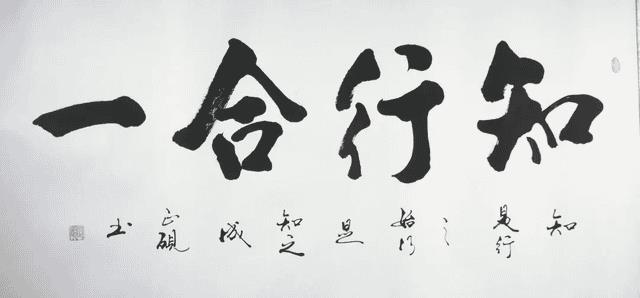 知行合一
知是行之始行是知之成正硯书